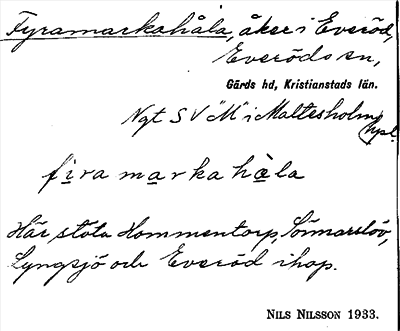 Fyramarkahåla, åker i Everöd,
Everöds sn,
Gärds hd, Kristianstads län.
Ngt SV "M" i Maltesholm
hpl.
fi̱ra ma̱rkahå̱la
Här stöta Hommentorp, Sönnarslöv,
Lyngsjö och Everöd ihop.
NILS NILSSON 1933.